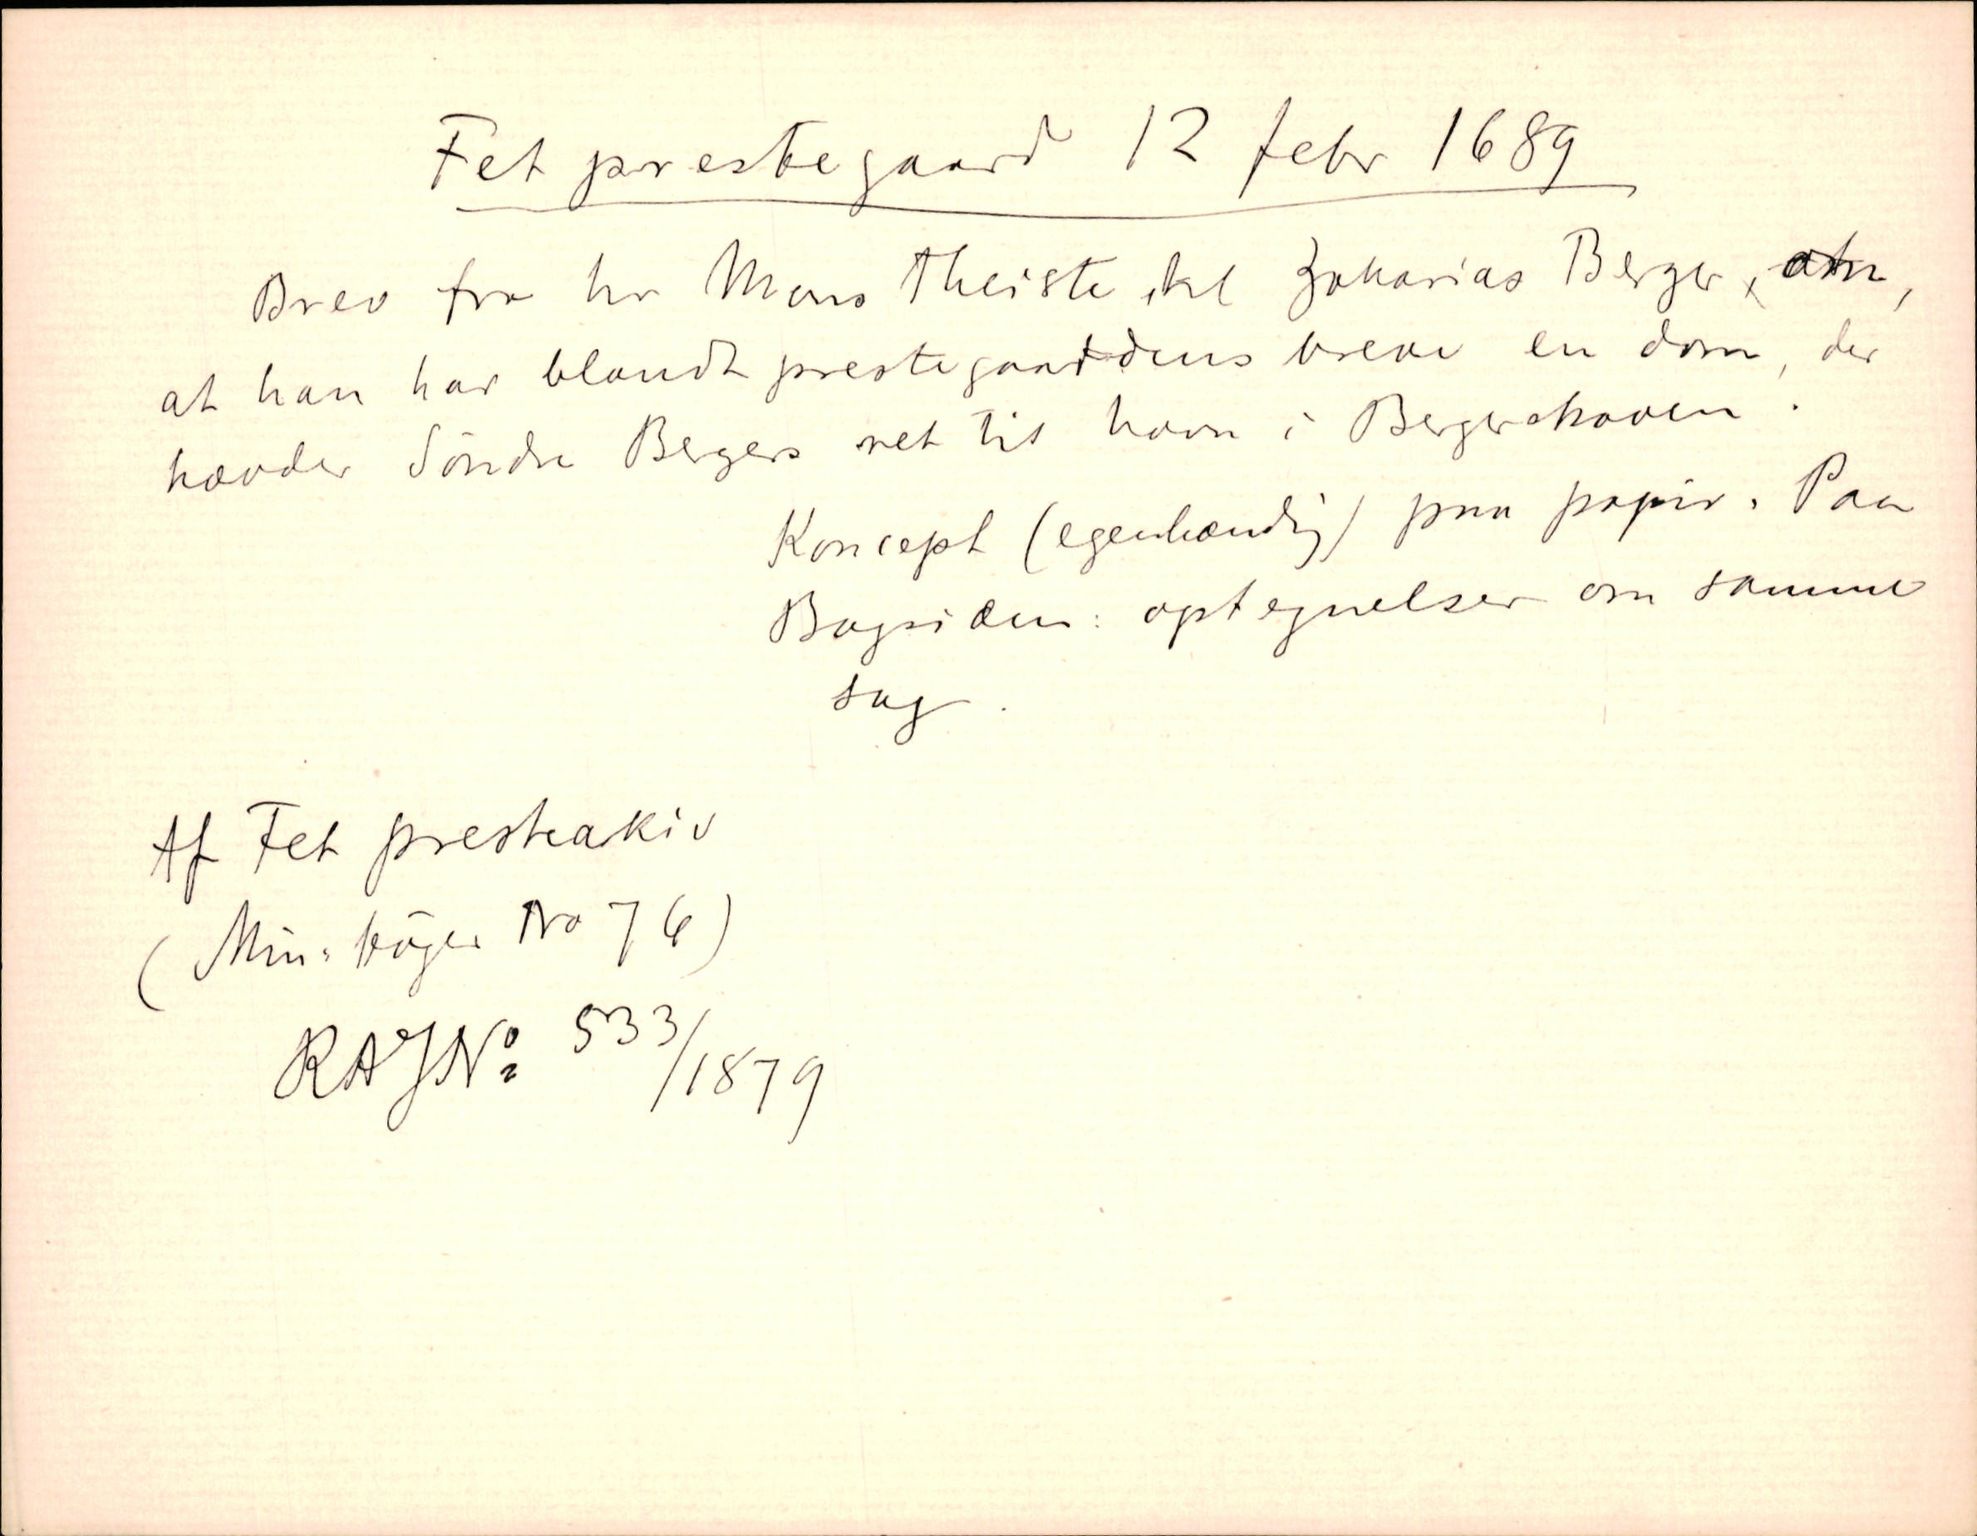 Fet prestegaard 12 febr 1689
Brev fra hr Mons Theiste til Zakarias Berger,
at han har blandt prestegaardens breve en dom, der
hævder Söndre Bergers ret til havn i Bergerskoven.
Koncept (egenhændig) paa papir. Paa
Bagsiden: optegnelser om samme
sag.
Af Fet prestearkiv
(Min. No 76)
RAJN: 533/1879